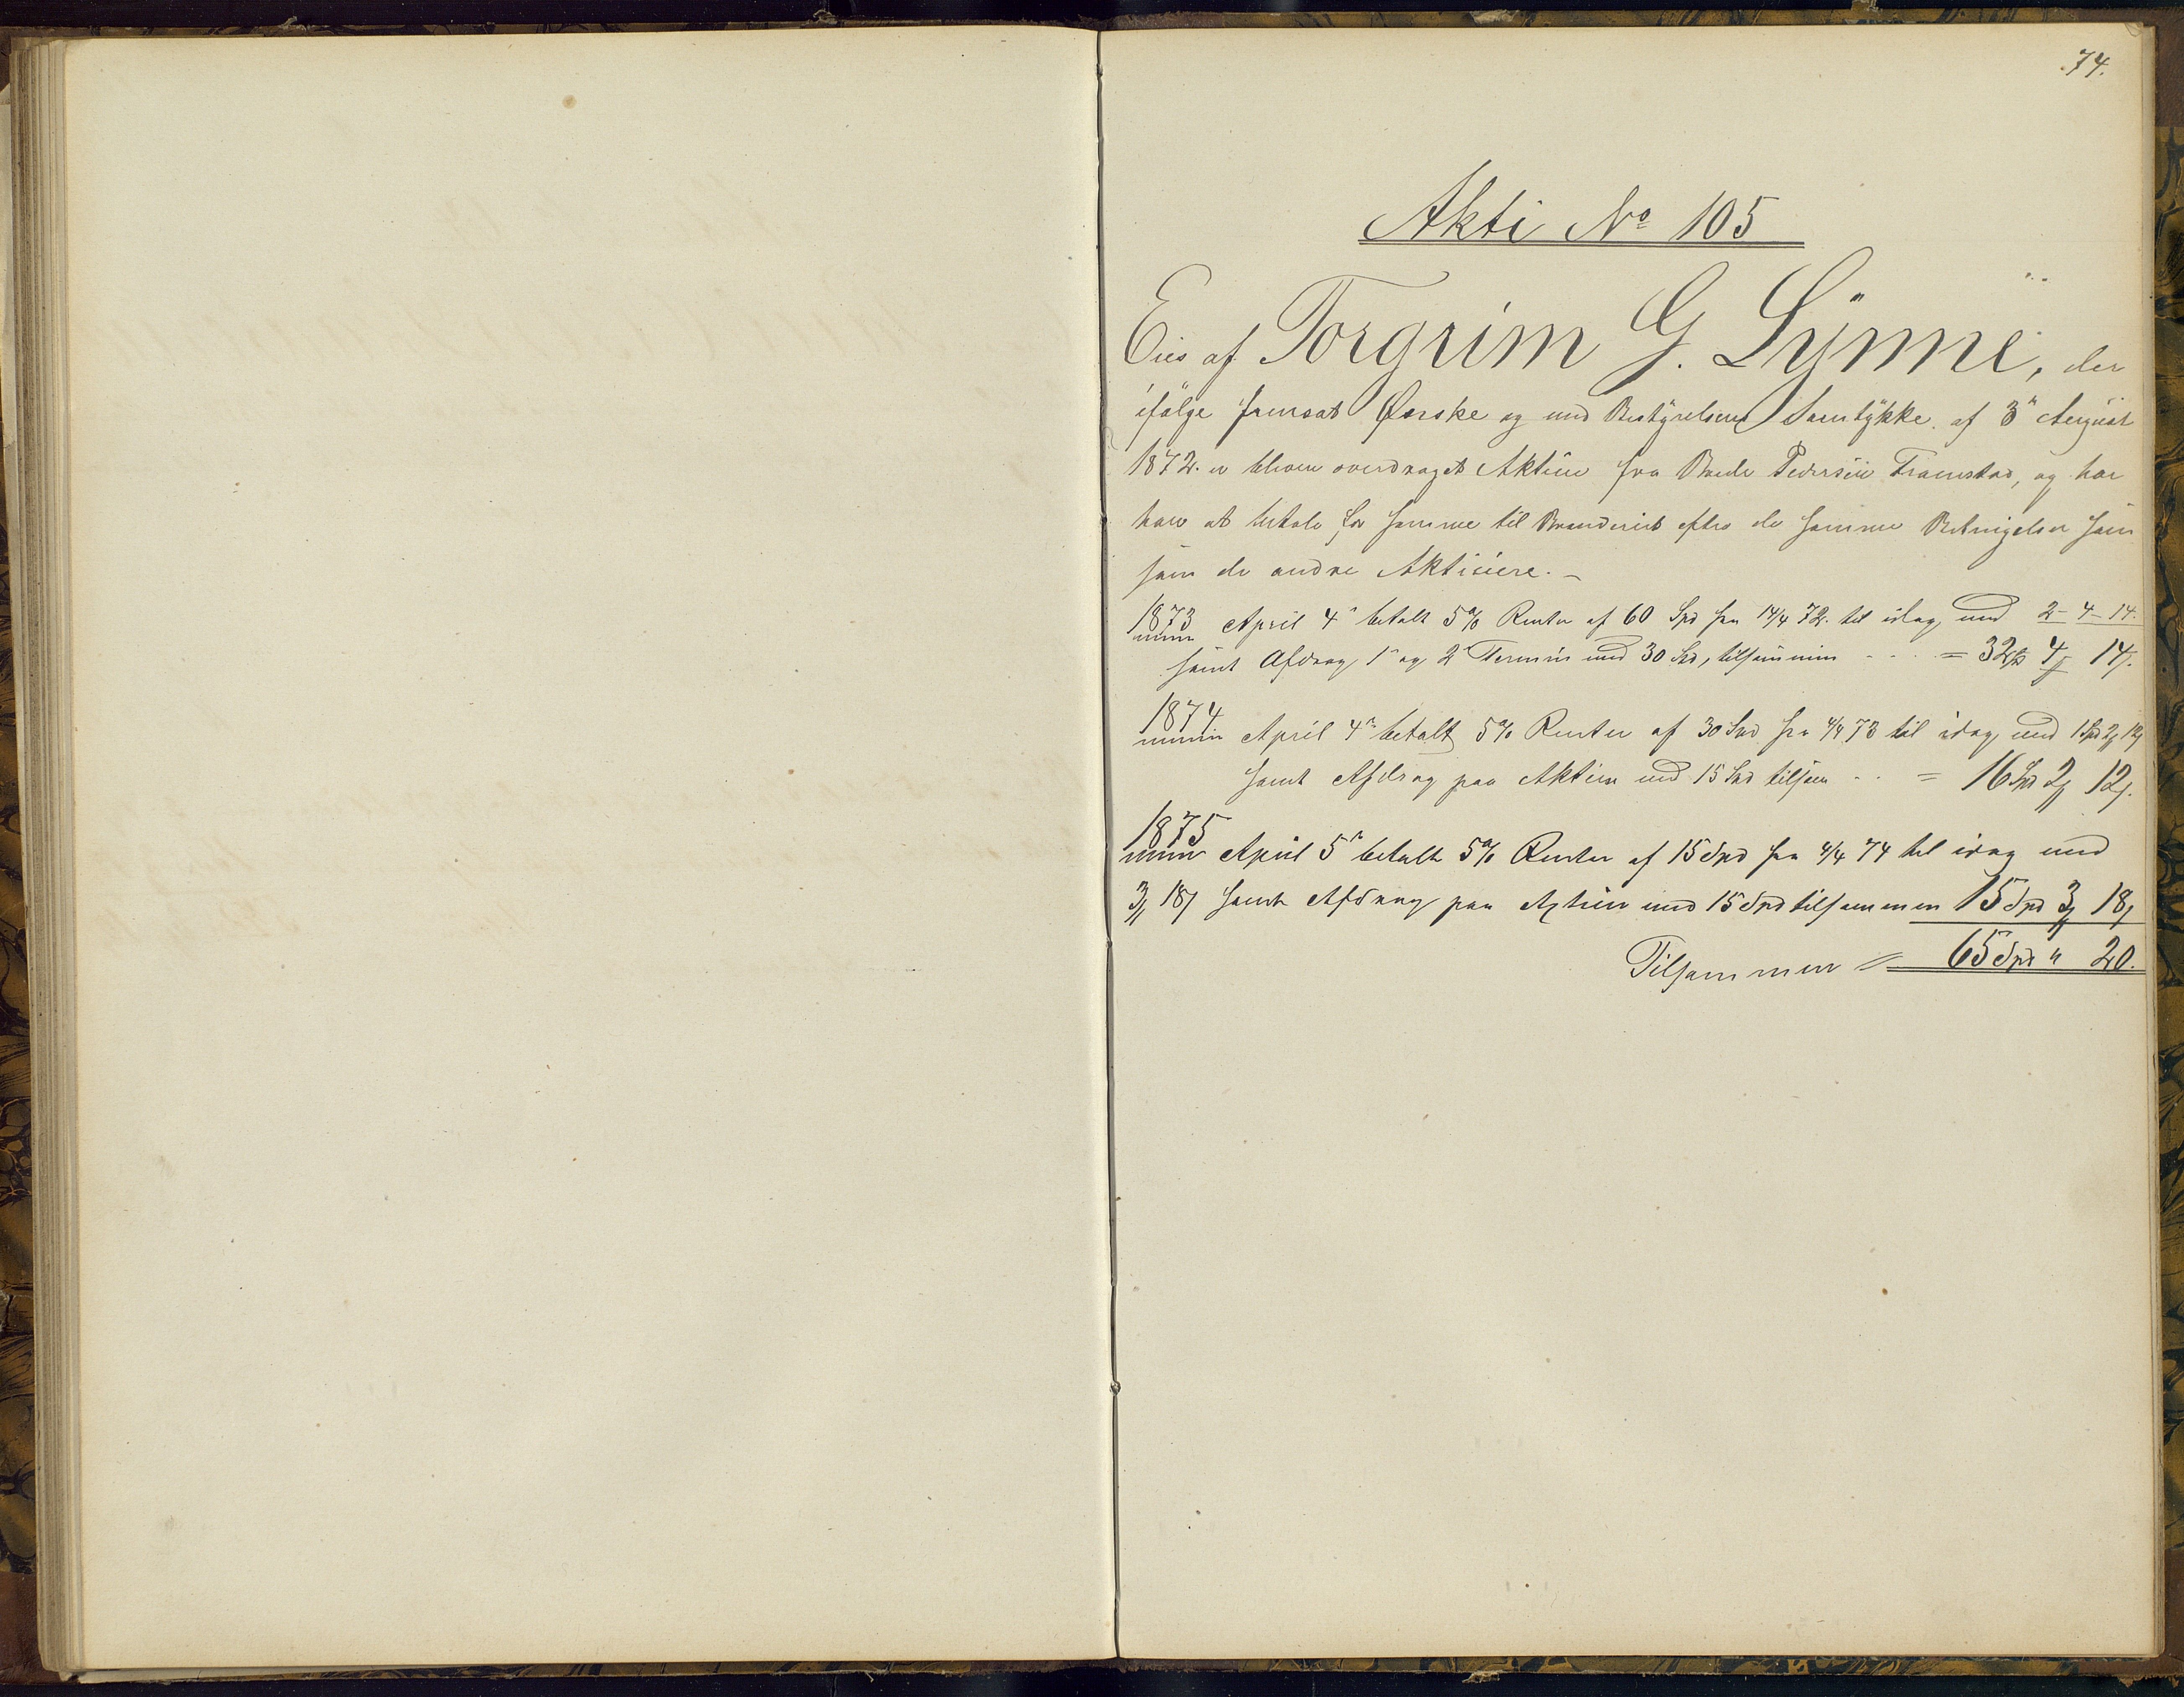 74.
Akti No 105
Eies af Torgrim G. Lynne, der
ifølge fremsat Ønske og med Bestyrelsens Samtykke af 3' August
1872. er bleven overdraget Aktien fra Brede Pedersen Framstad, og har
han at betale for samme til Brænderiet efter de samme Betingelser som
som de andre Aktieiere. —
1873 April 4' betalt 5% Renter af 60 Spd fra 14/4 72. til idag med 2 - 4 - 14.
samt Afdrag 1' og 2' Termin med 30 Spd, tilsammen - - - = 32 4 14.
1874 April 4' betalt 5% Renter af 30 Spd fra 4/4 73 til idag med 1 Spd 2 12
samt Afdrag paa Aktien med 15 Spd tilsam - - = 16 Spd 2 12.
1875 April 5' betalt 5% Renter af 15 Spd fra 4/4 74 til idag med
3 18 samt Afdrag paa Aktien med 15 Spd tilsammen 15 Spd 3 18
Tilsammen = 65 Spd " 20.